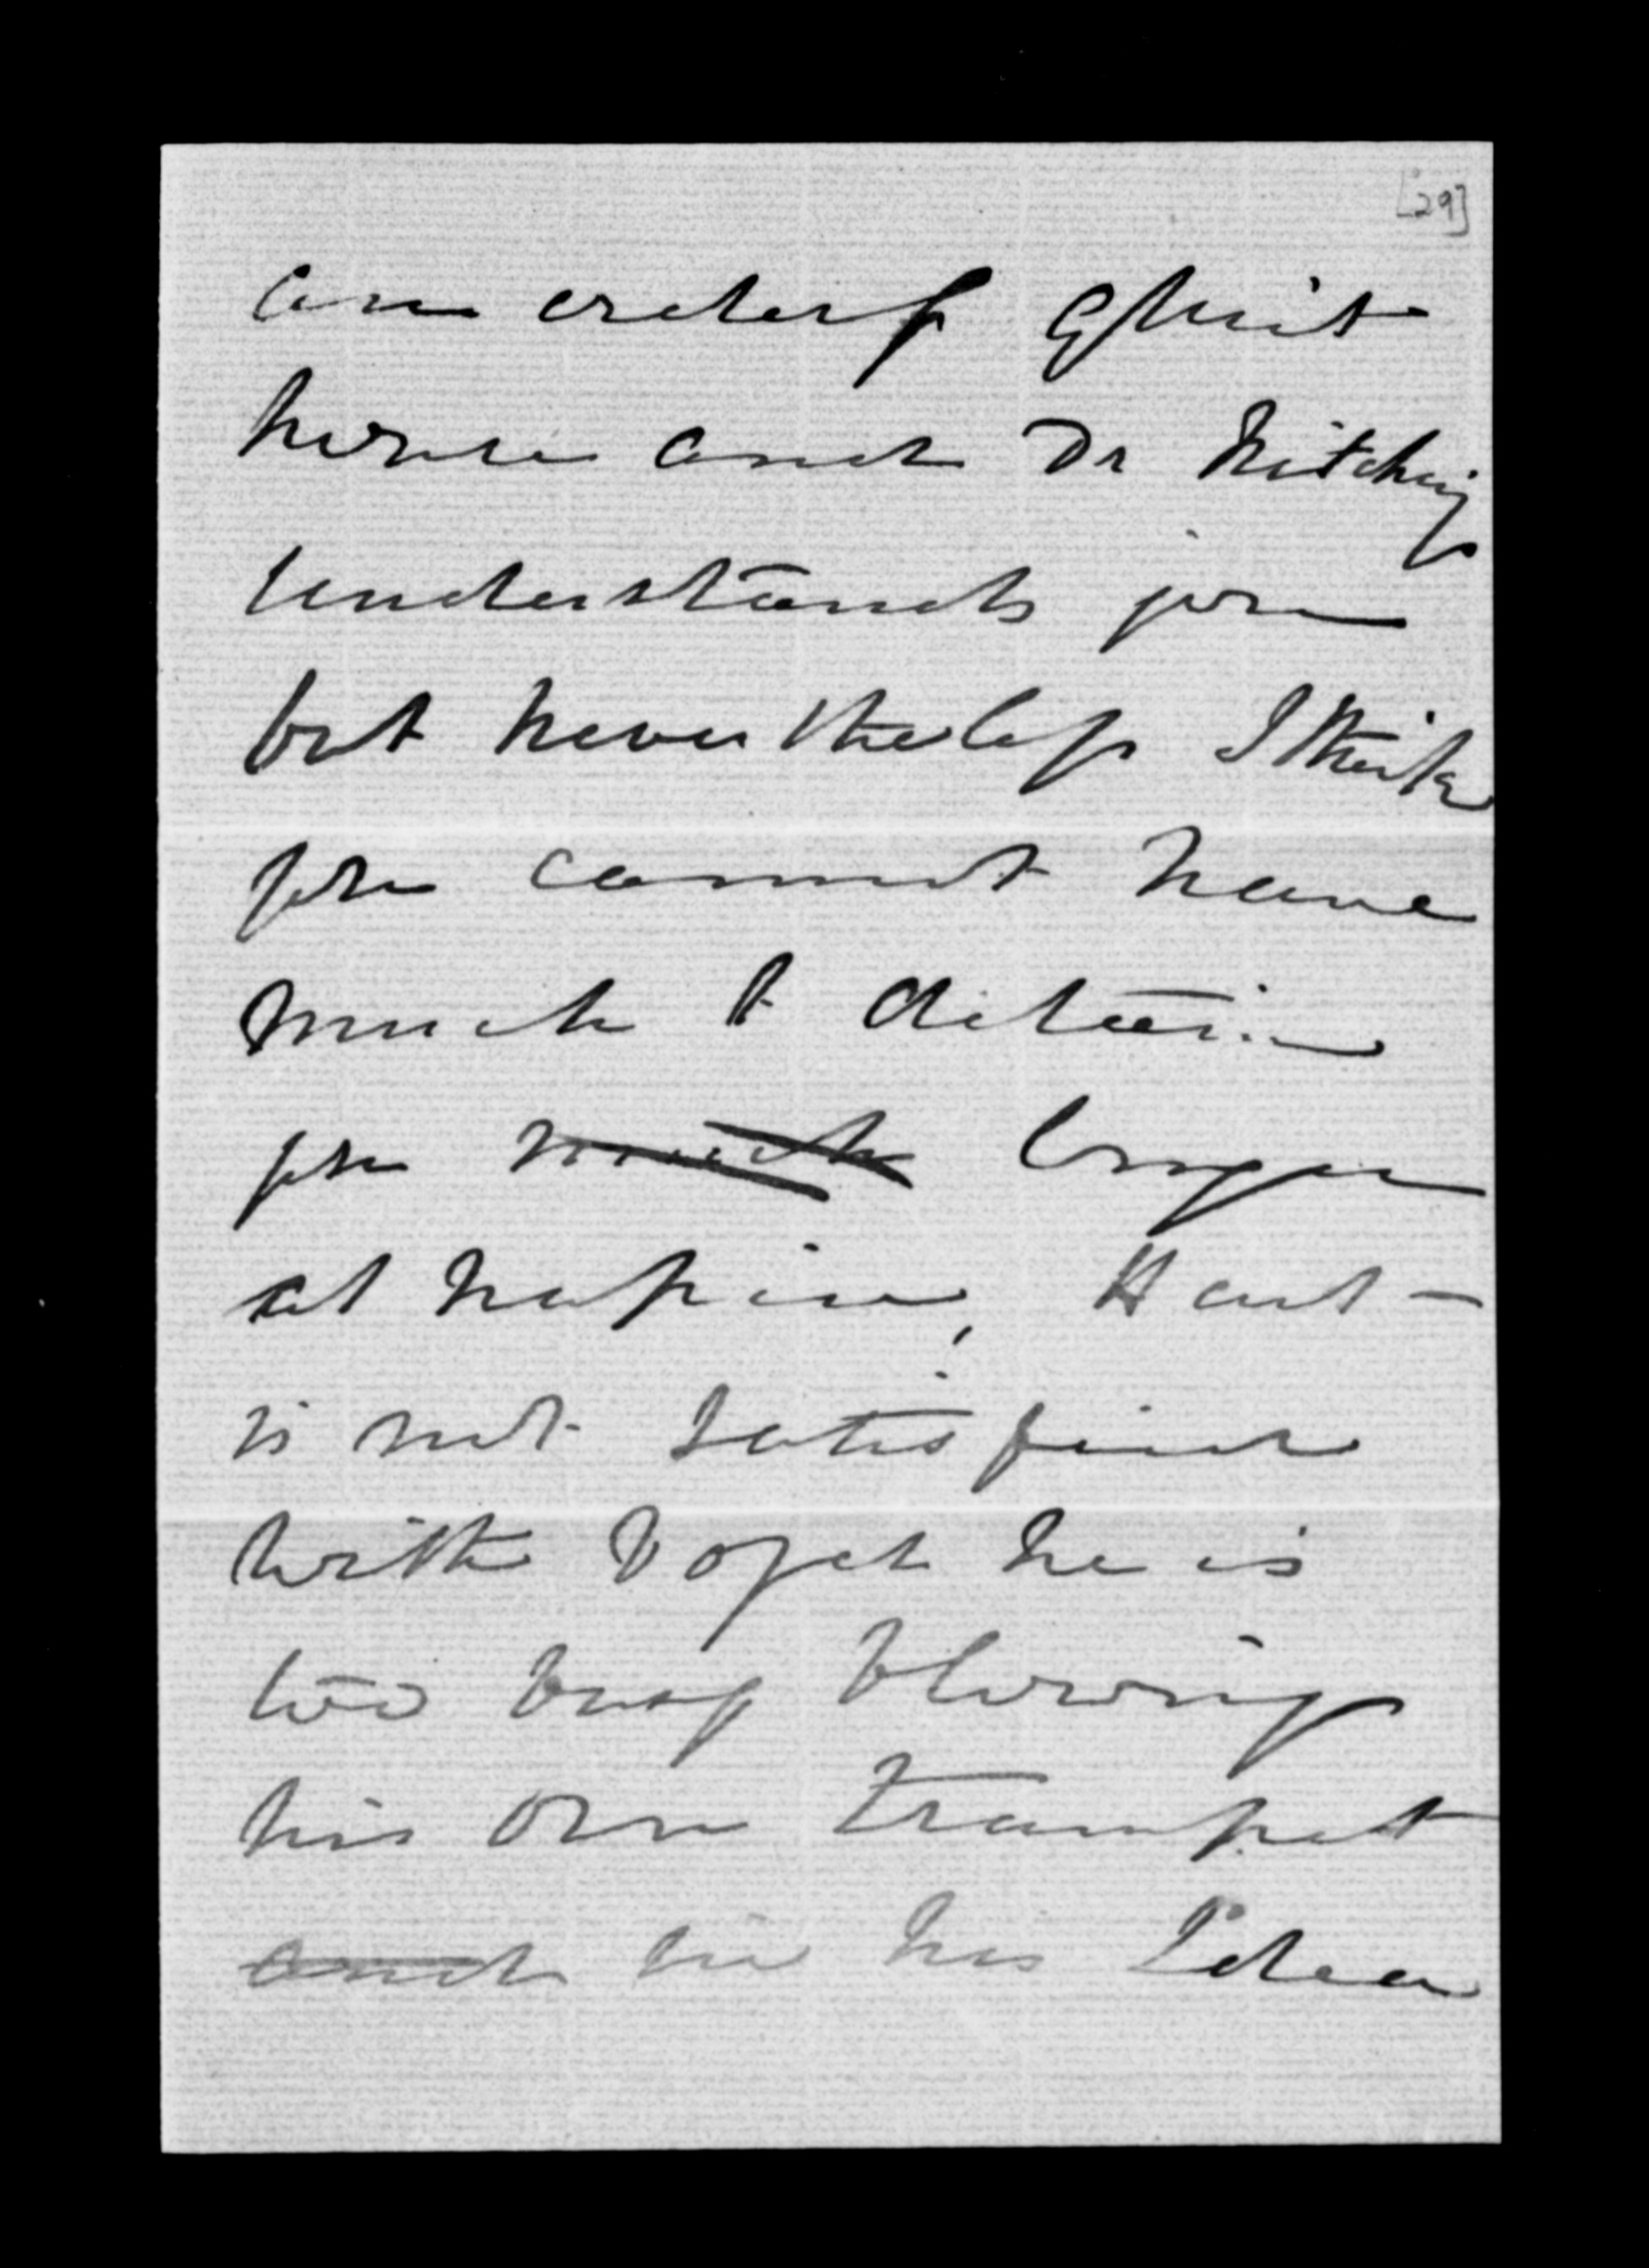 [29]
an orderly quiet
horse and Dr Hitchings
understands you
but nevertheless I think
you cannot have
much to detain
you much longer
at Napier, Hart
is not satisfied
with Boyd he is
too busy blowing
his own trumpet
and in his Idea